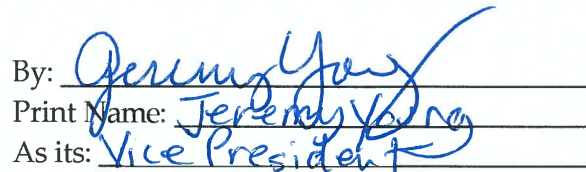 By: Jeremy Young
Print Name: Jeremy Young
As its: Vice President